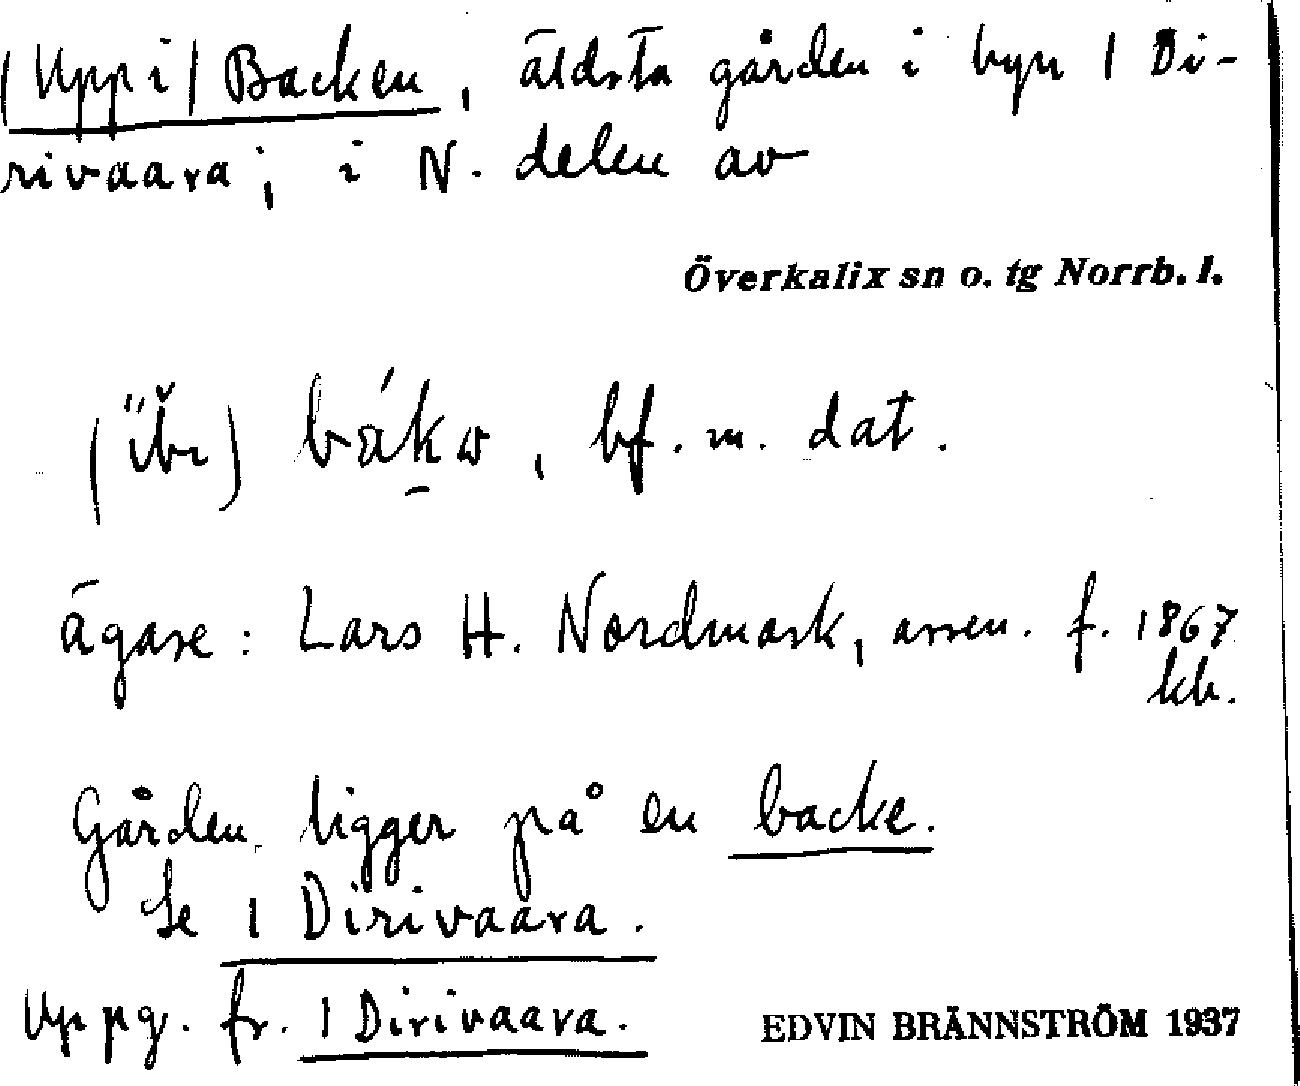 (Upp i) Backen, äldsta gården i byn 1 Di-
rivaara; i N. delen av
Överkalix sn o. tg Norrb. l.
bf. m. dat.
ägare: Lars H. Nordmark, arren. f. 1867
kb.
Gården ligger på en backe.
Se 1 Dirivaara.
Uppg. fr. 1 Dirivaara.
EDVIN BRÄNNSTRÖM 1937